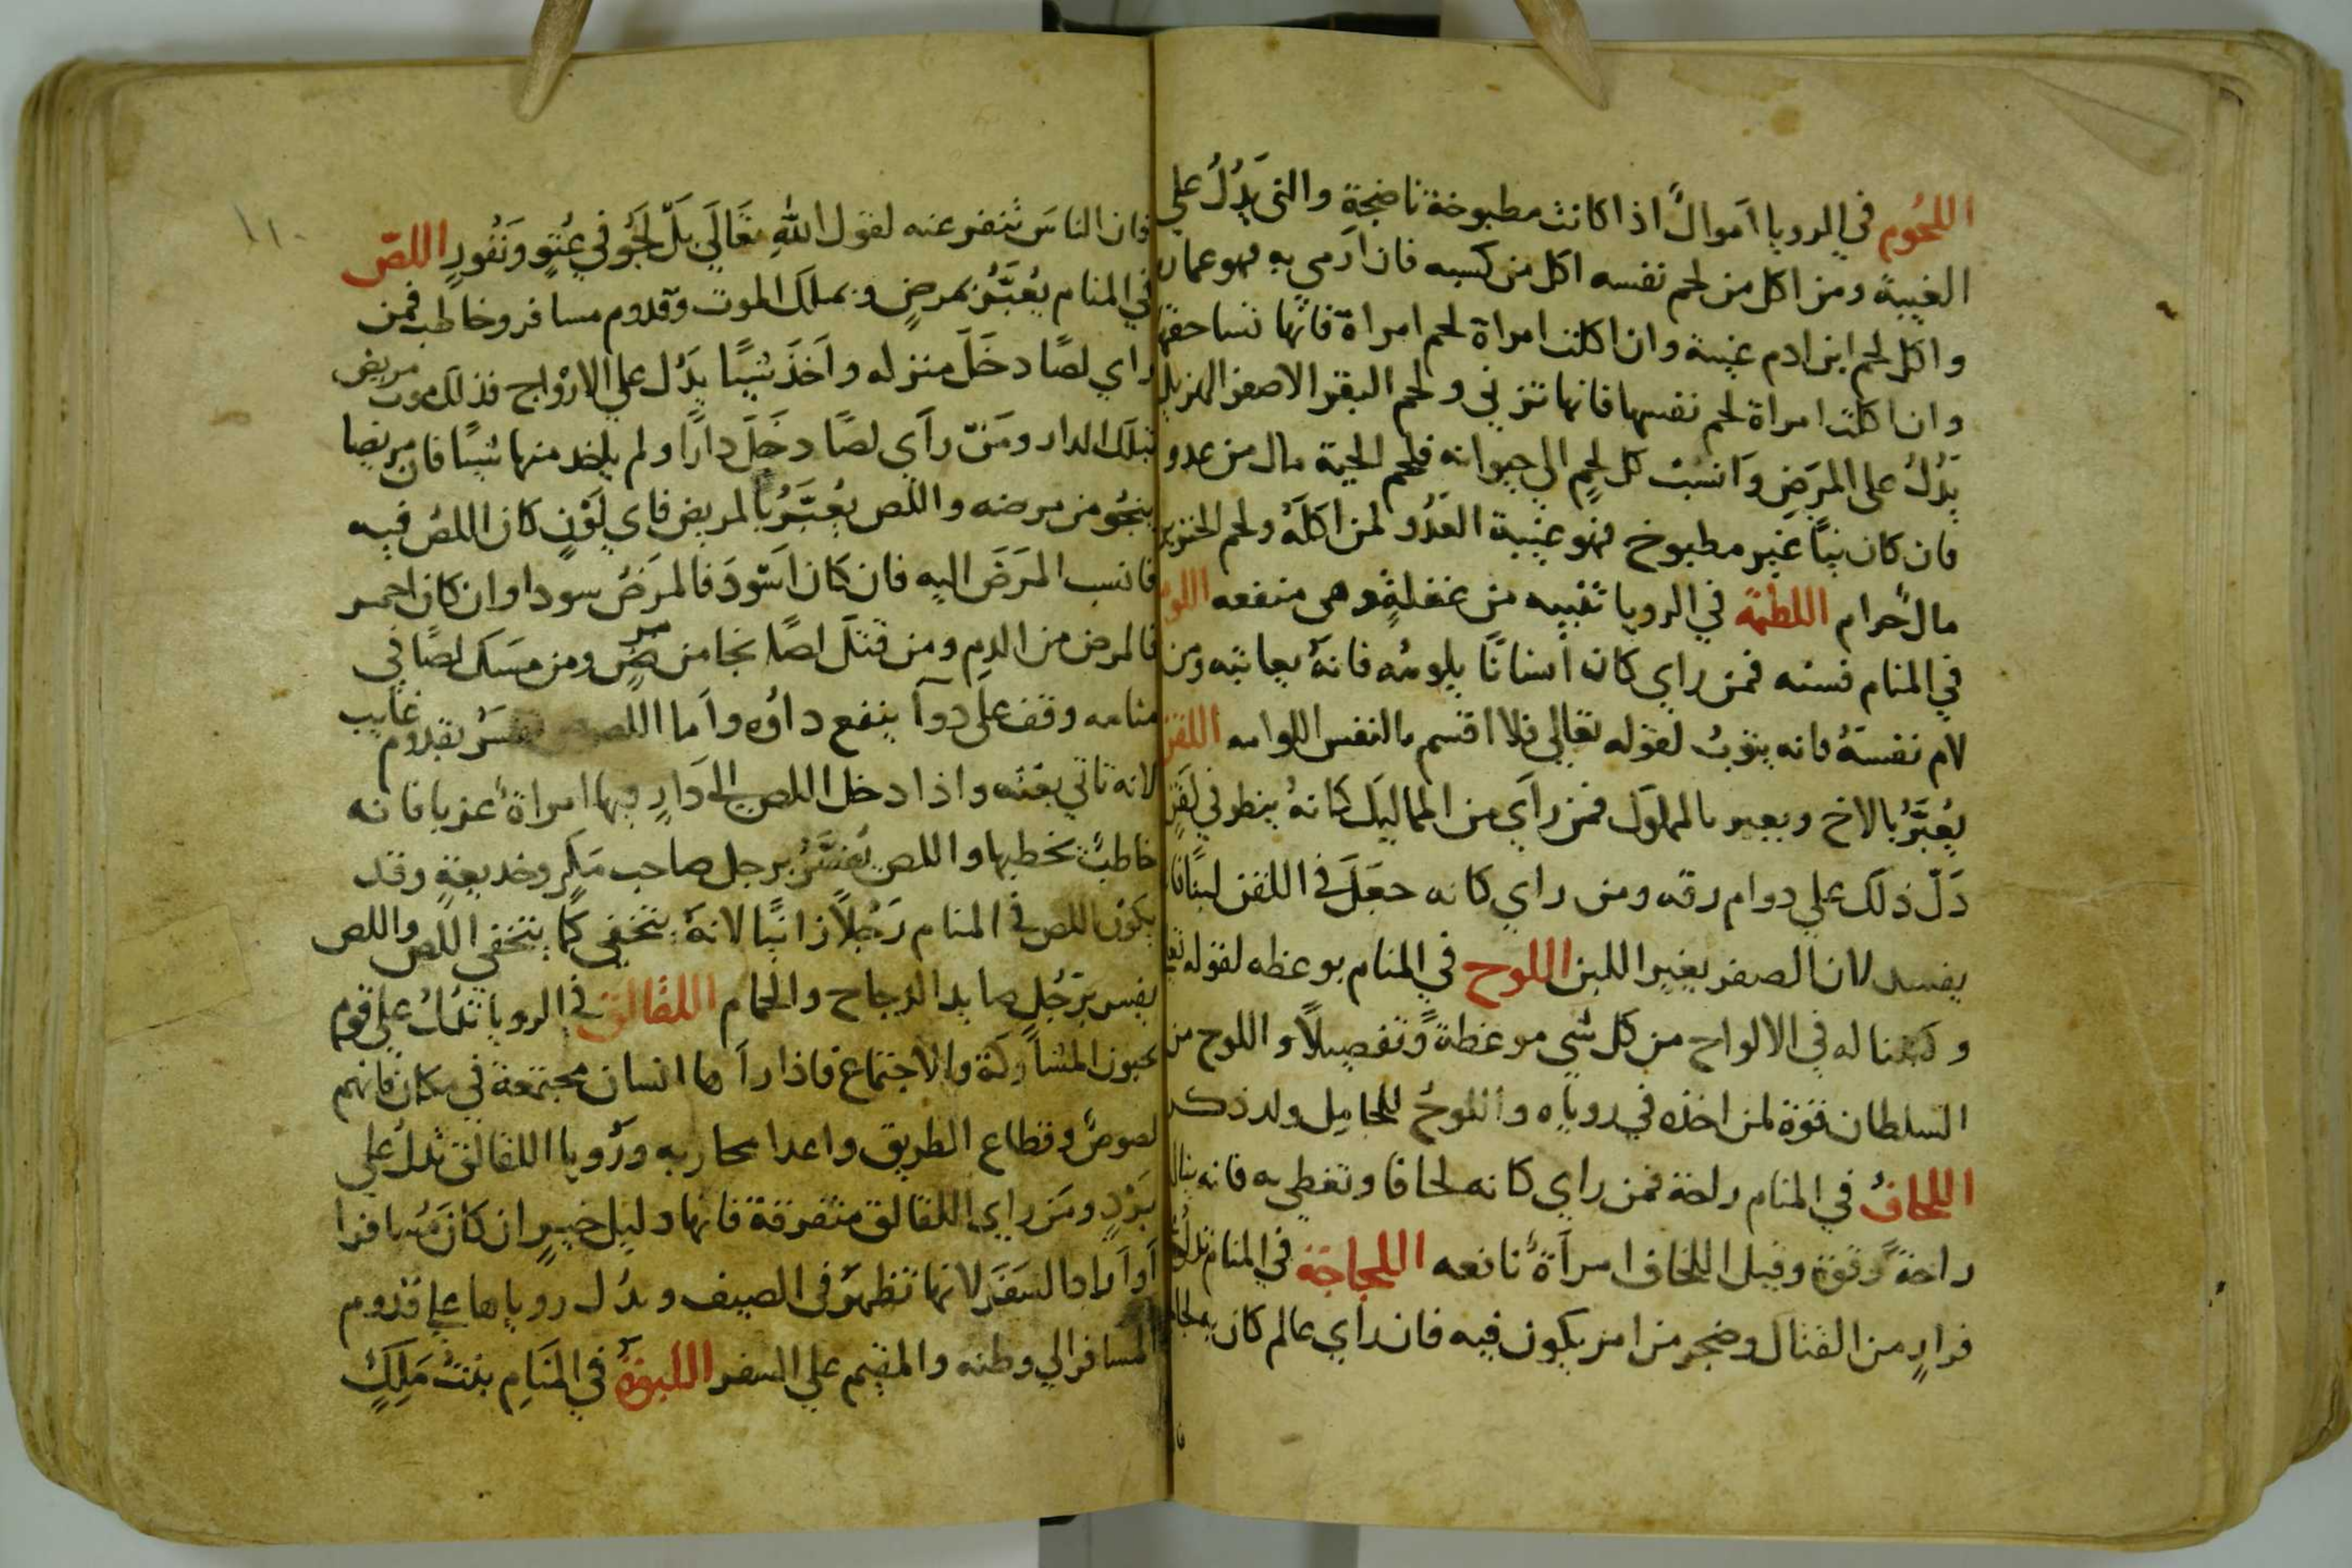 اللحُوم في الرويا اَموالٌ اذا كانت مطبوخة ناضجة والني يَدُلُ علي
الغيبة ومن اكل من لحم نفسه اكل من كسبه فان
واكل لحم ابن ادم غيبة وان اكلت امراة لحم امراة فانها تساحقها
وان اكلت امراة لحم نفسها فانها تزني ولحم البقر الاصفر الهزيل
يَدُلُ على المَرَضِ وَانسُبْ كل لحمٍ الي حيوانه فلحم الحية مال من عدو
فان كان نيًا غير مطبوخ فهو غيبة العَدُو لمن اكلَهُ ولحم الخنزير
مالٌ حرام اللطمة في الرويا تنبيه من غفلةٍ وهي منفعه اللوم
في المنام فمن راي كان أنسانًا يلومُه فانهُ يعاتبه ومن
لام نفسَهُ فانه يتوبُ لقوله تعالي فلا اقسم بالنفس اللوامه
يُعبَّرُ بالاخ ويعبر بالمملوك فمن راَي من المماليك كانهُ ينظر في
دَلّ ذلك علي دوام رقه ومن راي كانه جعَلَ في اللقن لبنًا فانه
يفسد لان الصفر يغير اللبن اللوح في المنام موعظه لقوله تعا
وكتبنا له في الالواح من كل شي موعظةً وتفصيلاً واللوح من
السلطان قوة لمن اخذه في روياه واللوحُ للحامِل ولد ذكر
اللحافُ في المنام راحة فمن راي كانه لحافا وتغطي به فانه ينال
راحةً وقوة وقيل اللحاف امراَةٌ نافعه اللجاجة في المنام تدلُ علي
فرارٍ من القتال وضجر من امر يكون فيه فان راي عالم كان به لجاجة
فان الناسَ تنفر عنه لقول اللّه تعَالَي بَلّ لَجُّو في عُتوٍ وَنُفُورٍ اللصّ
في المنام يُعبَّرُ بمرضٍ وبملَك الموت وقدوم مسافر وخاطب فمن
راي لصًا دخَلَ منزله واَخذَ شيًا يدَُل علي الازوَاج فذلك موت مريض
بتلك الدار ومَن راَي لصًا دخَلَ دارًا ولم ياخد منها شيًا فان مريضا
ينجُو من مرضه واللص يُعبَّرُ بالمريض فاي لَوْنٍ كان اللصُ فيه
فانسب المَرَضَ اليه فان كان اَسْوَدَ فالمرَضُ سودا وان كان احمر
فالمرض من الدمِ ومن قتَلَ لصًا نجا من مرضٍ ومن مسَك لصًا في
منامه وقف على دواَ ينفع داوُه واَما اللص يفسَرُ بقدوم غايب
لانه تاتي بغته واذا دخل اللص الي دَارٍ فيها امراةٌ عزبا فانه
خاطبٌ يخطبها واللص يُفسَّرُ برجل صاحب مَكرٍ وخديعةٍ وقد
يكون اللص في المنام رَجُلاً زانيًا لانهُ يتخفي كما يتخفي اللص واللص
يفسر برَجُلٍ صايد الدجاج والحمام اللقالق في الرويا تدُلُ علي قوم
يحبون المشاركة والاجتماع فاذا راَها انسان مجتمعة في مكان فانهم
لصوصٌ وقطاع الطريق واعدا محاربه ورُويا اللقالق تدل علي
بَرْدٍ ومَن راي اللقالق متفرقة فانها دليل خيرٍ ان كانَ مُسافرا
اَو اَراد السَفَر لانها تظهرُ في الصيف وتدُل روياها علي قدُوم
المسافر الي وطنه والمقيم علي السفر اللبوة في المَنَامِ بنتُ مَلِكٍ